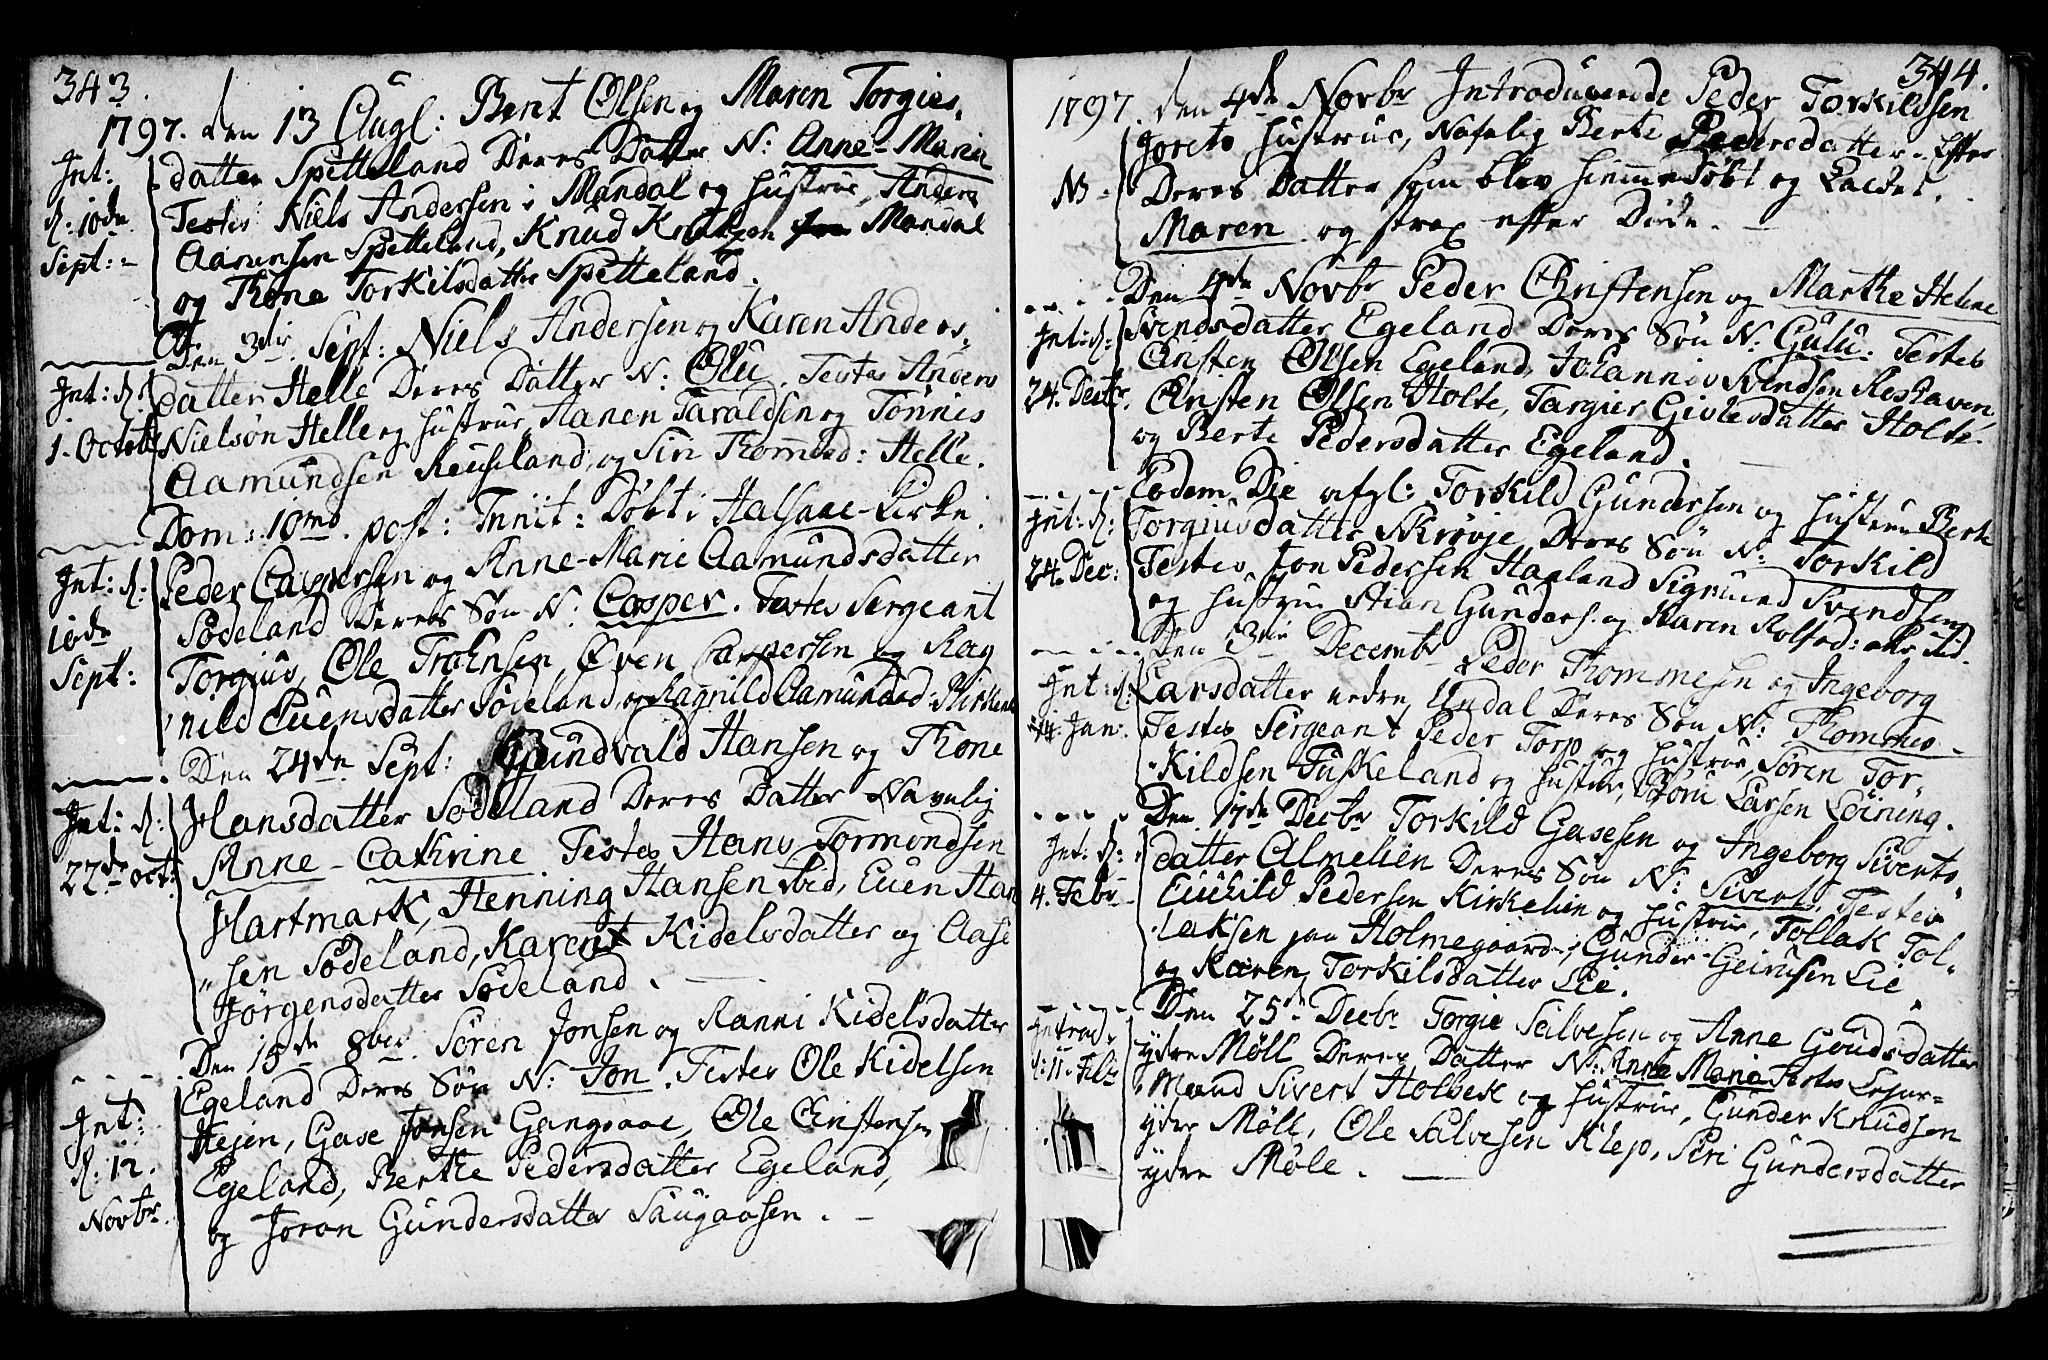 343.
1797. den 13 Augl: Bent Olsen og Maren Torgies-
Int:
d: 10de
Sept:-
datter Spetteland Deres Datter N: Anne-Marie
Testes Niels Andersen i Mandal og Hustrue, Anders
Aanensen Spetteland, Knud Knudsen Mandal
og Thone Torkilsdatter Spetteland.
Den 3die Sept: Niels Andersen og Karen Anders-
Int: d:
1. Octobr
datter Helle Deres Datter N: Olu. Testes Anders
Nielsøn Helle og Hustrue, Aanen Taraldsen og Tønnis
Aamundsen Reuseland, og Siri Thomasd: Helle.
Dom: 10md. post: Trinit: Døbt i Halsaae-Kirke.
Int: d:
10de
Sept:
Peder Caspersen og Anne-Marie Aamundsdatter
Sødeland Deres Søn N: Casper. Testes Sergeant
Torgius, Ole Troensen, Øven Caspersen og Rag
nild Euensdatter Sødeland, og Ragnild Aamundsd:
Den 24de Sept: Gundvald Hansen og Thone
Int: d:
22de oct:
Hansdatter Sødeland Deres Datter Navnlig
Anne-Cathrine Testes Hans Tormondsen
Hartmark, Henning Hansen ibid, Euen Han
"sen Sødeland, Karen Kidelsdatter og Aase
Jørgensdatter Sødeland.
Den 15de 8ber Søren Jonsen og Ranni Kidelsdatter
Int:
d: 12.
Novbr.
Egeland Deres Søn N: Jon. Testes Ole Kidelsen
Hejen, Gase Jonsen Gangsaae, Ole Christensen
Egeland, Berthe Pedersdatter Egeland,
og Joron Gundersdatter Saugaasen.
344.
1797. den 4de Novbr Introducerede Peder Torkildsen
NB.
Hustrue, Nafnlig Berte Pedersdatter. Efter
Deres Datter som blev hiemmedøbt og Kaldet.
Maren og strax efter Døde.
Den 4de Novbr Peder Christensen og Marthe Helene
Int: d:
24. Decbr.
Svendsdatter Egeland Deres Søn N: Gulu: Testes
Christen Olsen Egeland, Johannis Svendsen Roshaven,
Christen Olsen Holte, Targier Givlesdatter Holte
og Berte Pedersdatter Egeland.
Eodem Die Torkild Gundersen og Hustrue Berte
Int: d:
24. Dec:
Torgiusdatter Skrøvje Deres Søn N: Torkild
Testes Jon Pedersen Haaland Sigmund Svendsen
og Hustrue Stian Gunders. og Karen Rolfsd:
Den 3die Decembr Peder Thommesen og Ingeborg
Int: d:
14. Jan.
Larsdatter nedre Undal Deres Søn N: Thommes
Testes Sergeant Peder Torp og Hustrue, Søren Tor-
"kildsen Fuskeland og Hustrue, Larsen Løining.
Den 17de Decbr Torkild Gasesen og Ingeborg Siverts
Int: d:
4. Febr
datter Almelien Deres Søn N: Sivert, Testes
Euchild Pedersen Kirkelien og Hustrue, Tollak Tol-
"laksen paa Holmegaard, Gunder Geirusen Lie
og Karen Torkilsdatter Lie.
Den 25de Decbr Torgie Salvesen og Anne Goudsdatter
Introd.
d: 11. Febr
ydre Møll Deres Datter N: Anne Maria Testes Lejer-
"Mand Sivert Holbek og Hustrue, Gunder Knudsen
ydre Møll, Ole Salvesen Klep, Siri Gundersdatter
ydre Møle.